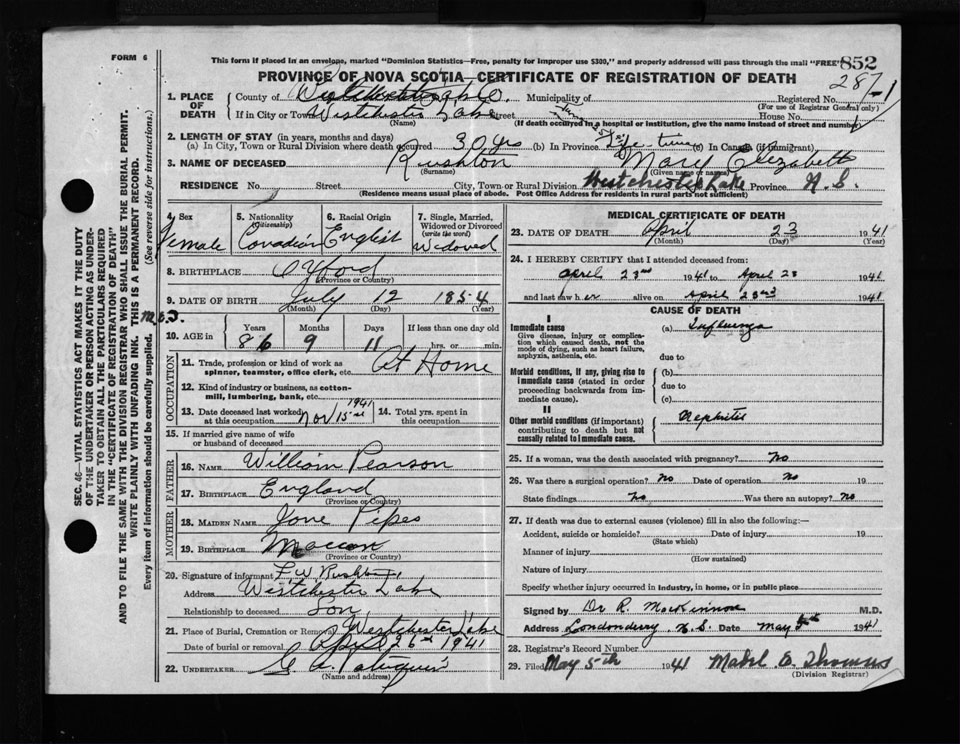 FORM 6
This form if placed in an envelope, marked "Dominion Statistics—Free, penalty for improper use $300," and properly addressed will pass through the mail "FREE"
852
PROVINCE OF NOVA SCOTIA—CERTIFICATE OF REGISTRATION OF DEATH
287-1
1. PLACE OF DEATH
County of
Municipality of
Registered No.
(For use of Registrar General only)
If in City or Town Westchester Lake Street
House No.
(Name)
(If death occurred in a hospital or institution, give the name instead of street and number)
2. LENGTH OF STAY (in years, months and days)
(a) In City, Town or Rural Division where death occurred 30 yrs (b) In Province Life-time (c) In Canada (if immigrant)
3. NAME OF DECEASED Rushton Mary Elizabeth
(Surname) (Given name or names)
RESIDENCE No. Street City, Town or Rural Division Westchester Lake Province N.S.
(Residence means usual place of abode. Post Office Address for residents in rural parts not sufficient)
4. Sex
Female
5. Nationality (Citizenship)
Canadian
6. Racial Origin
English
7. Single, Married, Widowed or Divorced (write the word)
Widowed
8. BIRTHPLACE Oxford
(Province or Country)
9. DATE OF BIRTH July 12 1854
(Month) (Day) (Year)
10. AGE in Years Months Days If less than one day old
86 9 11 hrs. or min.
OCCUPATION
11. Trade, profession or kind of work as spinner, teamster, office clerk, etc. At Home
12. Kind of industry or business, as cotton-mill, lumbering, bank, etc.
13. Date deceased last worked at this occupation Nov 15 1941
14. Total yrs. spent in this occupation
15. If married give name of wife or husband of deceased
FATHER
16. NAME William Pearson
17. BIRTHPLACE England
(Province or Country)
MOTHER
18. MAIDEN NAME Jane Pipes
19. BIRTHPLACE Maccan
(Province or Country)
20. Signature of informant F W Rushton
Address Westchester Lake
Relationship to deceased Son
21. Place of Burial, Cremation or Removal Westchester Lake
Date of burial or removal April 26th 1941
22. UNDERTAKER
(Name and address)
MEDICAL CERTIFICATE OF DEATH
23. DATE OF DEATH April 23 1941
(Month) (Day) (Year)
24. I HEREBY CERTIFY that I attended deceased from:
April 23rd 1941 to April 23 1941
and last saw h er alive on April 23rd 1941
CAUSE OF DEATH
I
Immediate cause
Give disease, injury or complication which caused death, not the mode of dying, such as heart failure, asphyxia, asthenia, etc.
(a) Influenza
due to
Morbid conditions, if any, giving rise to immediate cause (stated in order proceeding backwards from immediate cause).
(b)
due to
(c)
II
Other morbid conditions (if important) contributing to death but not causally related to immediate cause.
Nephritis
25. If a woman, was the death associated with pregnancy? No
26. Was there a surgical operation? No Date of operation No 19
State findings No Was there an autopsy? No
27. If death was due to external causes (violence) fill in also the following:—
Accident, suicide or homicide? Date of injury 19
(State which)
Manner of injury
(How sustained)
Nature of injury
Specify whether injury occurred in industry, in home, or in public place
Signed by Dr R. MacKinnon M.D.
Address Londonderry N.S. Date May 5th 1941
28. Registrar's Record Number
29. Filed May 5th 1941 Mabel
(Division Registrar)
SEC. 46—VITAL STATISTICS ACT MAKES IT THE DUTY
OF THE UNDERTAKER OR PERSON ACTING AS UNDER-
TAKER TO OBTAIN ALL THE PARTICULARS REQUIRED
IN THE "CERTIFICATE OF REGISTRATION OF DEATH"
AND TO FILE THE SAME WITH THE DIVISION REGISTRAR WHO SHALL ISSUE THE BURIAL PERMIT.
WRITE PLAINLY WITH UNFADING INK. THIS IS A PERMANENT RECORD.
Every item of information should be carefully supplied. (See reverse side for instructions.)